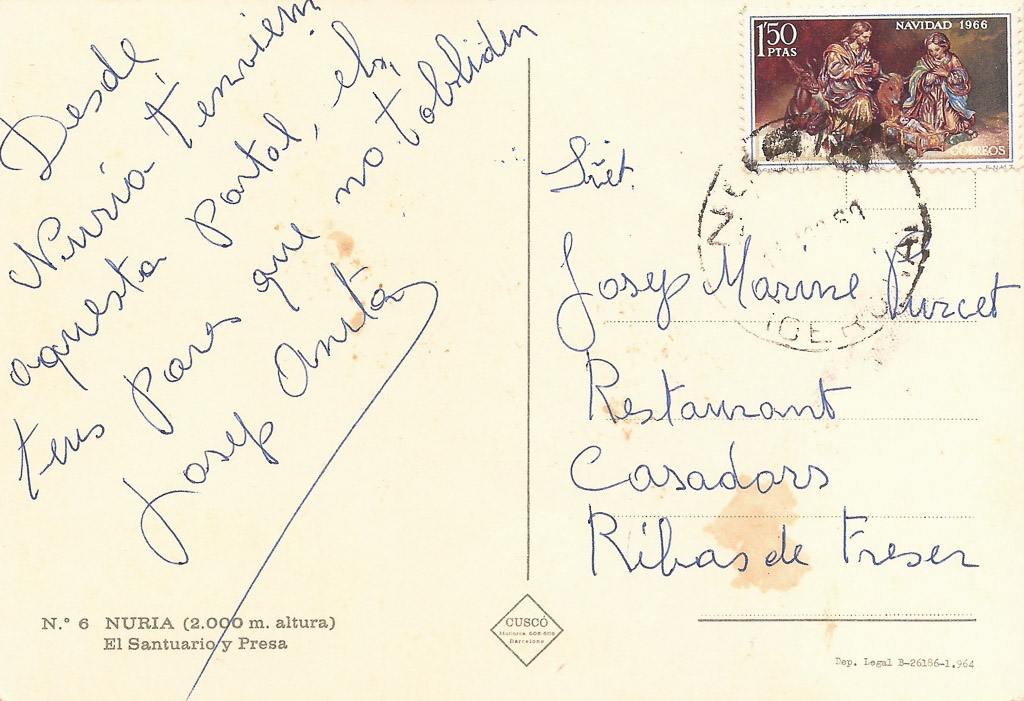 Desde
Nuria t'enviem
aquesta portal, els
teus pares que no t'obliden
Josep Anita
N.º 6 NURIA (2.000 m. altura)
El Santuario y Presa
CUSCÓ
Barcelona
1'50
PTAS
NAVIDAD 1966
CORREOS
Josep Marine Purcet
Restaurant
Casadors
Ribas de Freser
Dep. Legal B-26186-1.964